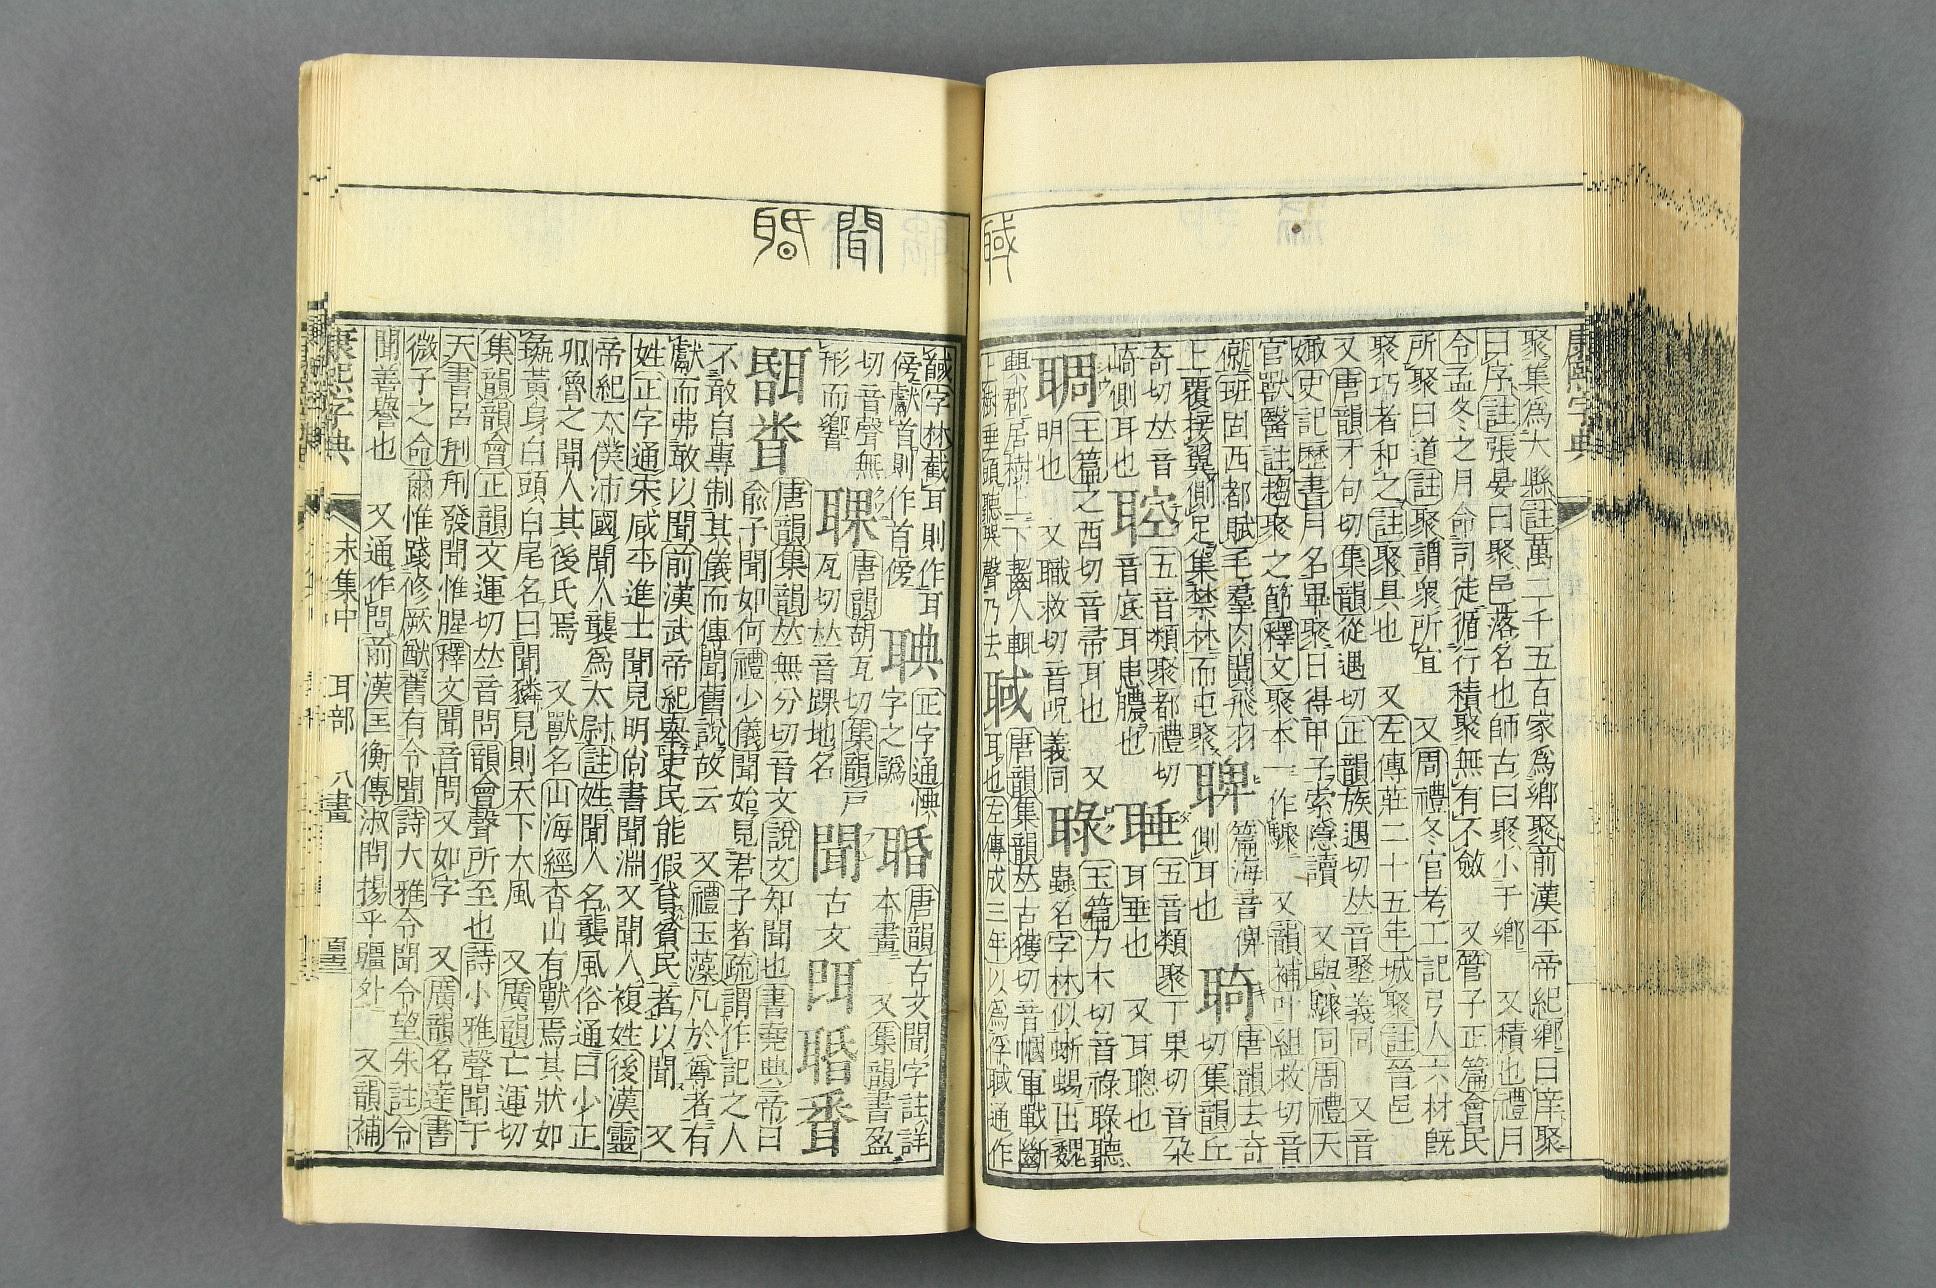 聝
康熙字典
聚集爲大縣註萬二千五百家爲鄉聚前漢平帝紀鄉曰庠聚
曰序註張晏曰聚邑落名也師古曰聚小于鄉　又積也禮月
令孟冬之月命司徒循行積聚無有不斂　又管子正篇會民
所聚曰道註聚謂衆所宜　又周禮冬官考工記弓人六材旣
聚巧者和之註聚具也　又左傳莊二十五年城聚註晉邑
又唐韻才句切集韻從遇切正韻族遇切𠀤音堅義同　又音
娵史記歷書月名畢聚日得甲子索隱讀　又與驟同周禮天
官獸醫註趨聚之節釋文聚本一作驟　又韻補叶組救切音
僦班固西都賦毛羣內闐飛羽
上覆接翼側足集禁林而屯聚
聛
篇海音俾
側耳也
唐韻去奇
切集韻丘
奇切𠀤音
崎側耳也
五音類聚都禮切
音底耳患膿也
五音類聚丁果切音朶
耳垂也　又耳聰也
玉篇之酉切音帚耳也　又
明也　又職救切音呪義同
玉篇力木切音祿聽
蟲名字林似蜥蜴出魏
興郡居樹上下齧人輒
上樹垂頭聽哭聲乃去
聝
唐韻集韻𠀤古獲切音幗軍戰斷
耳也左傳成三年以爲俘聝通作
聞
馘字林截耳則作耳
傍獻首則作首傍
正字通㥏
字之譌
唐韻古文聞字註詳
本畫　又集韻書盈
切音聲無
形而響
唐韻胡瓦切集韻戸
瓦切𠀤音踝地名
聞
古文
唐韻集韻𠀤無分切音文說文知聞也書堯典帝曰
俞予聞如何禮少儀聞始見君子者疏謂作記之人
不敢自專制其儀而傳聞舊說故云　又禮玉藻凡於尊者有
獻而弗敢以聞前漢武帝紀舉吏民能假貸貧民者以聞　又
姓正字通宋咸平進士聞見明尚書聞淵又聞人複姓後漢靈
帝紀太僕沛國聞人襲爲太尉註姓聞人名襲風俗通曰少正
卯魯之聞人其後氏焉　又獸名山海經杳山有獸焉其狀如
彘黃身白頭白尾名曰聞獜見則天下大風　又廣韻亡運切
集韻韻會正韻文運切𠀤音問韻會聲所至也詩小雅聲聞于
天書呂刑刑發聞惟腥釋文聞音問又如字　又廣韻名達書
微子之命爾惟踐修厥猷舊有令聞詩大雅令聞令望朱註令
聞善譽也　又通作問前漢匡衡傳淑問揚乎疆外　又韻補
康熙字典　未集中　耳部　八畫